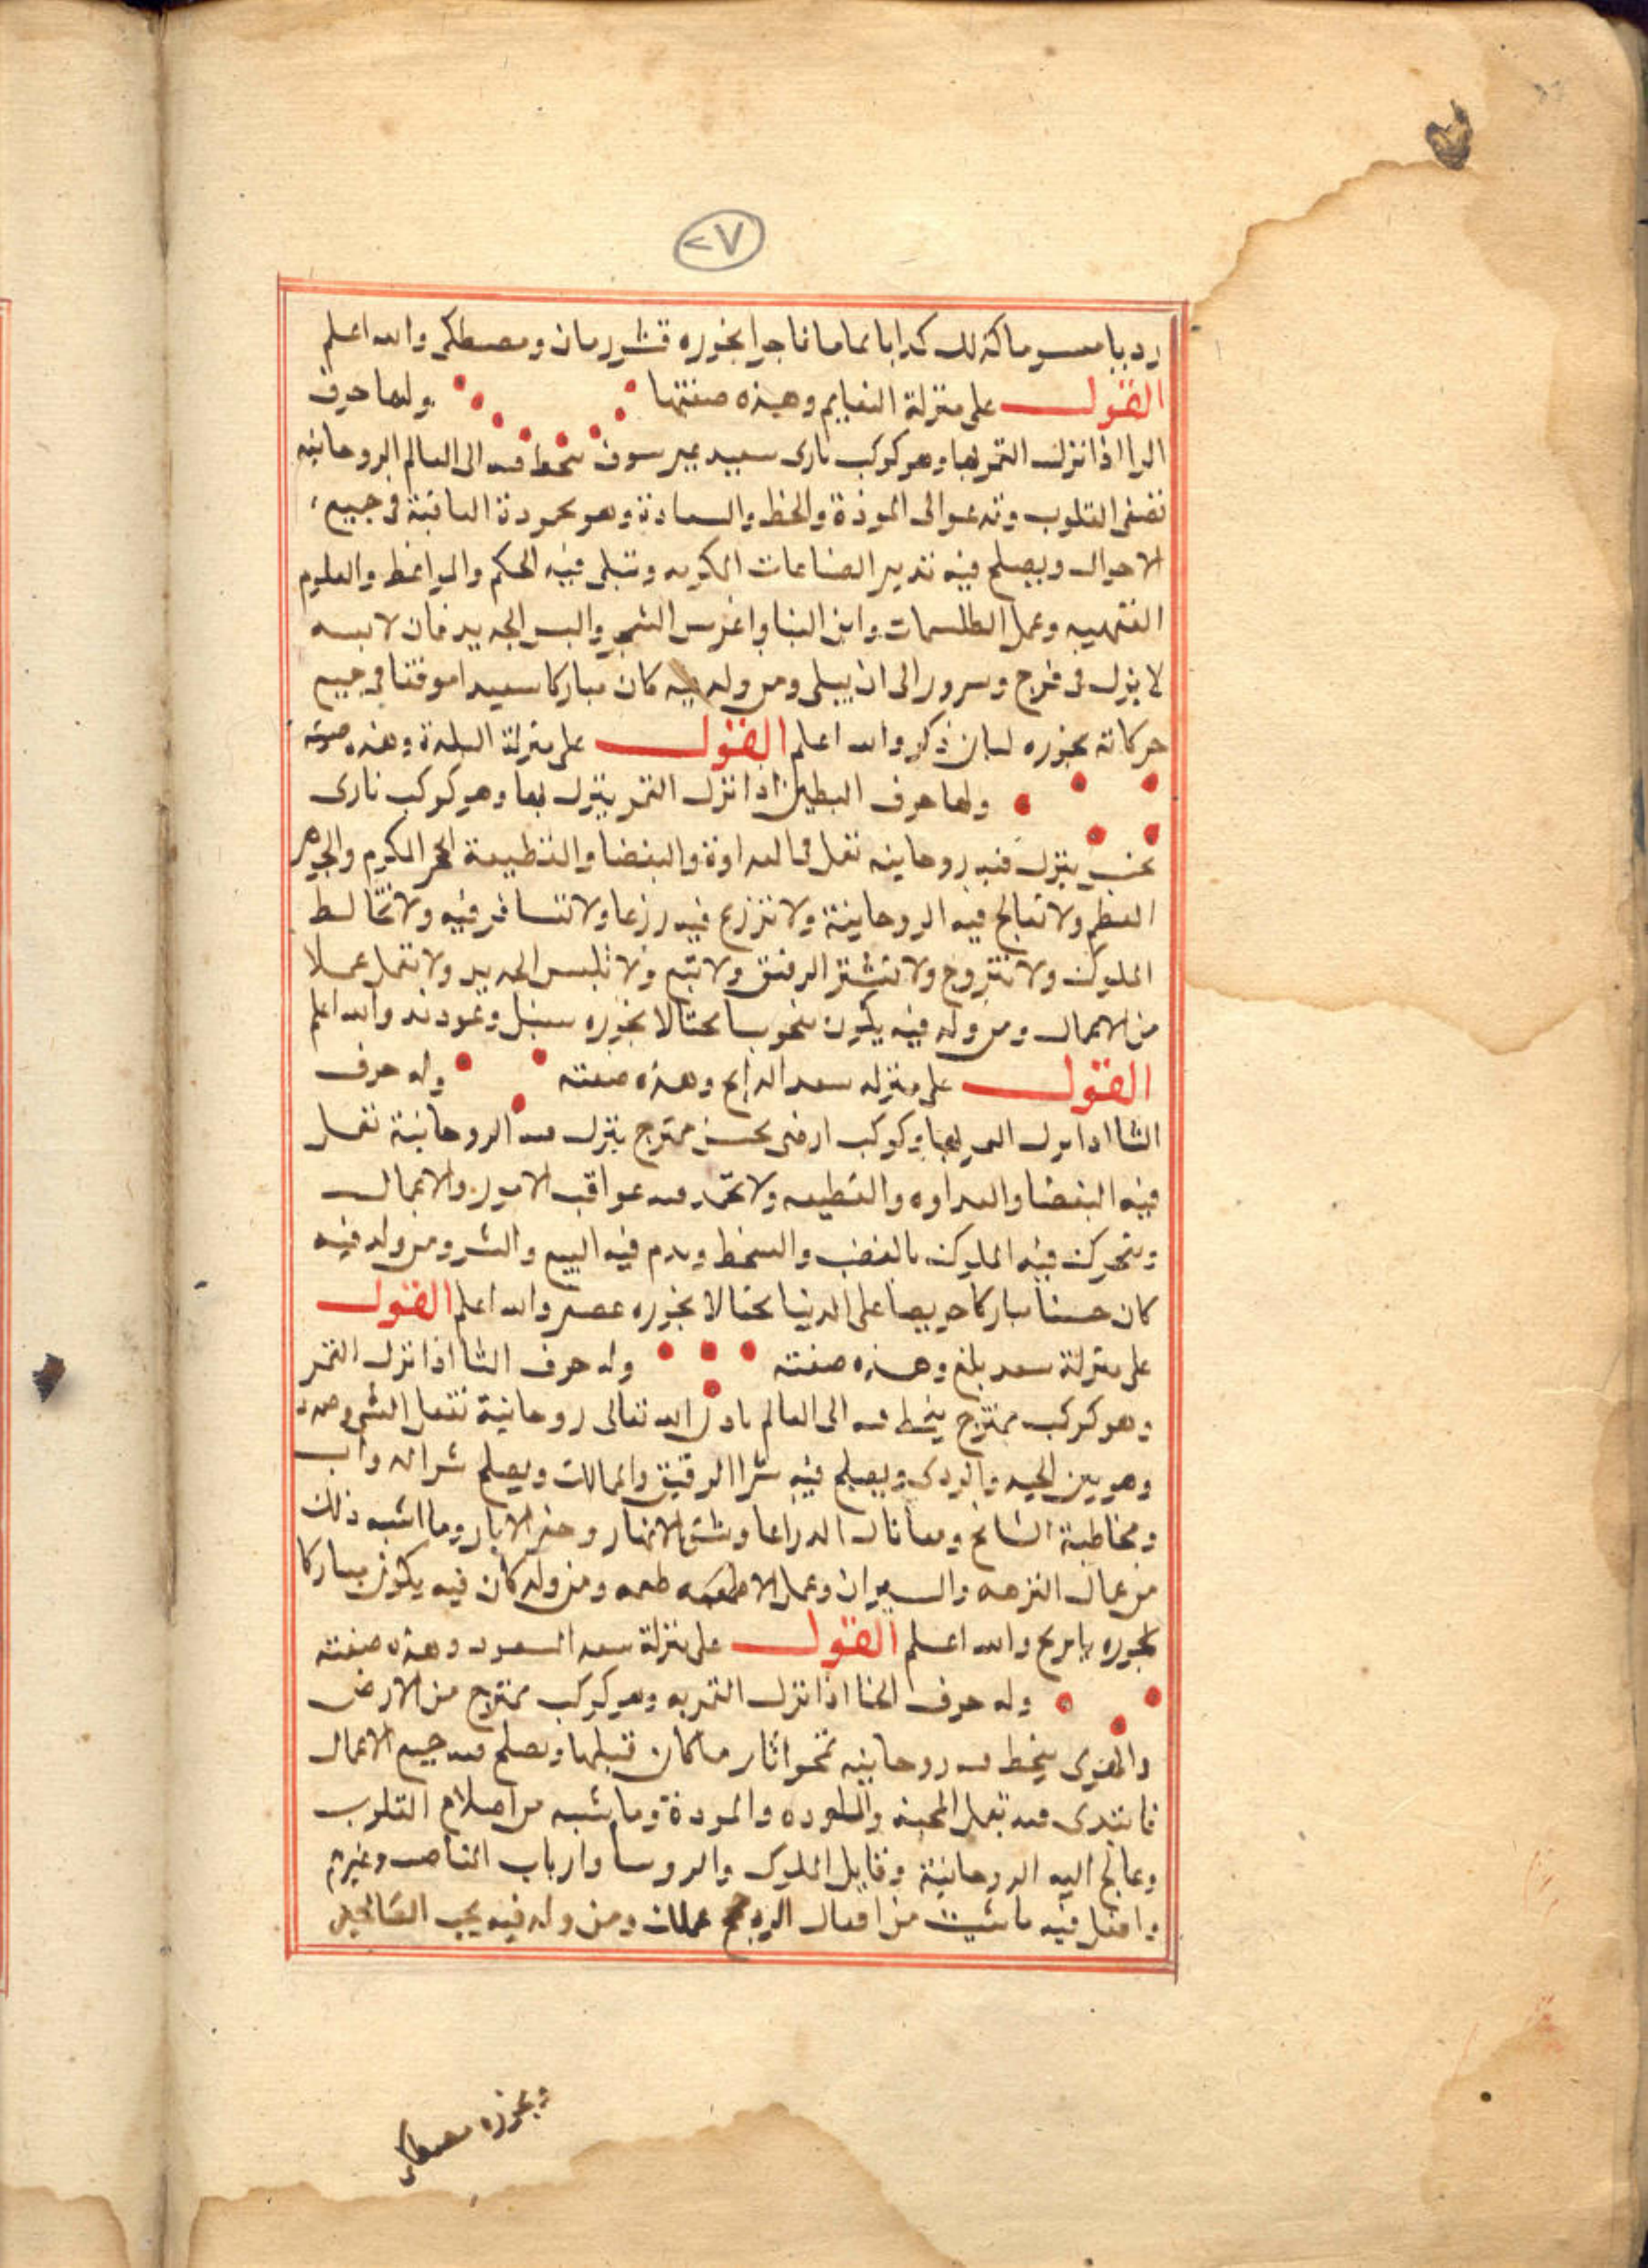 ٢٧
كذلك كدابا بخوره قشور رمان ومصطكى والله اعلم
القول على منزلة النعايم وهذه صفتها ولها حرف
الرا اذا نزل القمر بها وهو كوكب نارى سعيد ينحط فيه الى العالم الروحانيه
تصفى القلوب وتدعوا الى المودة والحظ والسعادة وهو محمودة العاقبة فى جميع
الاحوال ويصلح فيه تدبير الصناعات الكريمه وتتلى فيه الحكم والمواعظ والعلوم
الفقهيه وعمل الطلسمات وابن البنا واغرس الشجر والبس الجديد فان لابسه
لا يزل فى فرح وسرور الى ان يبلى ومن ولد فيه كان مباركا سعيدا موفقا فى جميع
حركاته بخوره لبان ذكر والله اعلم القول على منزلة البلدة وهذه صفته
ولها حرف اذا نزل القمر ينزل بها وهو كوكب نارى
نحس ينزل فيه روحانيه تعمل فى العداوة والبغضا والقطيعة الحجر المكرم والجوهر
العظم ولا تعالج فيه الروحانية ولا تزرع فيه زرعا ولا تسافر فيه ولا تخالط
الملوك ولا تتزوج ولا تشتر الرقيق ولا تبع ولا تلبس الجديد ولا تعمل عملا
من الاعمال ومن ولد فيه يكون منحوسا محتالا بخوره سنبل وعود ند والله اعلم
القول على منزله سعد الدابح وهذه صفته وله حرف
التا اذا نزل القمر بها وكوكب ارضى نحس ممتزج ينزل فيه الروحانية تعمل
فيه البغضا والعداوه والقطيعه ولا تحمد فيه عواقب الامور والاعمال
وتتحرك فيه الملوك بالغضب والسخط ويدم فيه البيع والشر ومن ولد فيه
كان حسنا مباركا حريصا على الدنيا محتالا بخوره والله اعلم القول
على منزلة سعد بلع وهذه صفته وله حرف الثا اذا نزل القمر
وهو كوكب ممتزج ينحط فيه الى العالم باذن الله تعالى روحانية تفعل الشر
وهو بين الجيد والردى ويصلح فيه شرا الرقيق والمماليك ويصلح شرا الدواب
ومخاطبة المشايخ الزراعا وشق الانهار وحفر الابار وما اشبه ذلك
من النزهه وعمل الاطعمه ومن ولد كان فيه يكون مباركا
بخوره والله اعلم القول على منزلة سعد السعود وهذه صفته
وله حرف الخا اذا نزل القمر به وهو كوكب ممتزج من الارض
والهوى ينحط فيه روحانيه تمحو اثار ما كان قبلها ويصلح فيه جميع الاعمال
فابتدى فيه بعمل المحبة والمودة وما يشبه من اصلاح القلوب
وعالج اليه الروحانية وقابل الملوك والروسا وارباب المناصب وغيرهم
وافعل فيه ما شيت من افعال ومن ولد فيه يحب
وبخوره مصطكى